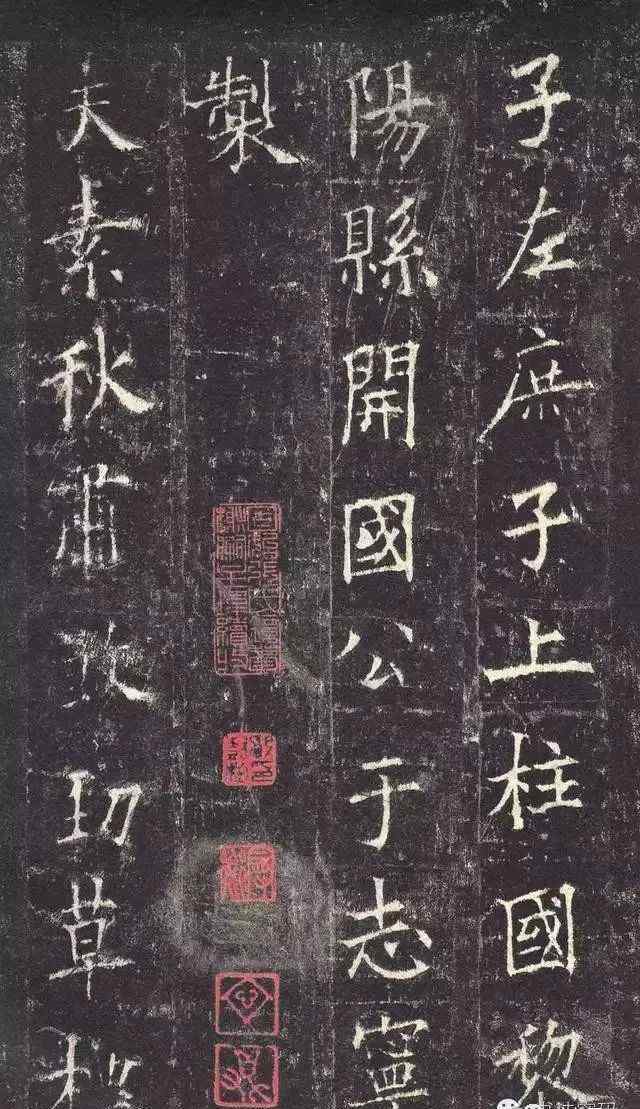 子左庶子上柱國黎
陽縣開國公于志寧
製
夫素秋肅勁草